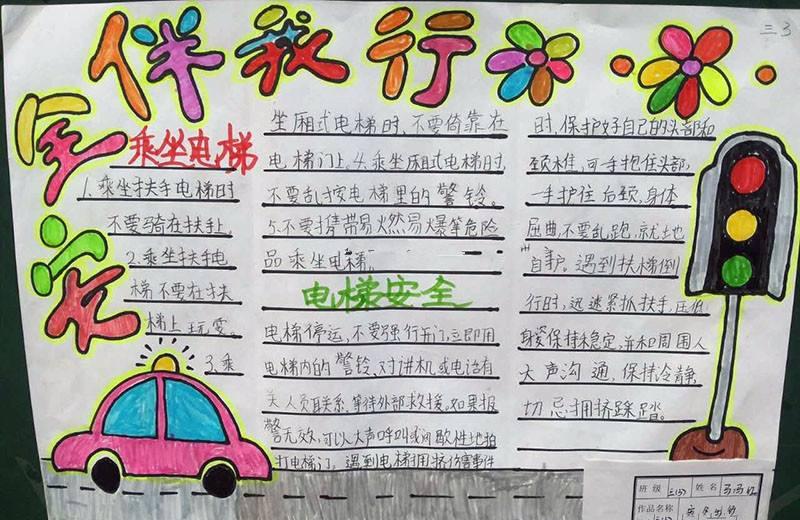 三3
安全伴我行
乘坐电梯
1.乘坐扶手电梯时
不要骑在扶手上.
2.乘坐扶手电
梯不要在扶
梯上玩耍.
3.乘
坐厢式电梯时,不要倚靠在
电梯门上.4.乘坐厢式电梯时,
不要乱按电梯里的警铃。
5.不要携带易火然易爆等危险
品乘坐电梯.
电梯安全
电梯停运,不要强行开门,立即用
电梯内的警铃、对讲机或电话有
关人员联系,等待外部救援。如果报
警无效,可以大声呼叫或间歇性地拍
打电梯门。遇到电梯拥挤伤害事件
时,保护好自己的头部和
颈椎,可手抱住头部,
一手护住后颈,身体
屈曲,不要乱跑,就地
自我护。遇到扶梯倒
行时,迅速紧抓扶手,压低
身姿保持稳定,并和周围人
大声沟通,保持冷静
切忌拥挤踩踏。
班级 三(3) 姓名
作品名称